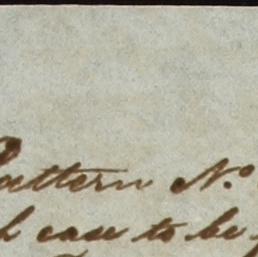 Pattern No.
case to be